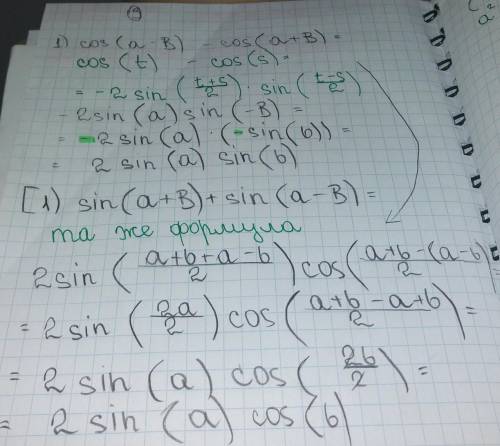 9
1) cos(a-B) - cos(a+B) =
cos(t) - cos(s) =
= -2 sin(\frac{t+s}{2}) · sin(\frac{t-s}{2})
- 2 sin(a) sin(-B) =
= -2 sin(a) · (-sin(b)) =
= 2 sin(a) sin(b)
[1) sin(a+B) + sin(a-B) =
та же формула
2 sin(\frac{a+b+a-b}{2}) cos(\frac{a+b-(a-b)}{2}) =
= 2 sin(\frac{2a}{2}) cos(\frac{a+b-a+b}{2}) =
= 2 sin(a) cos(\frac{2b}{2}) =
= 2 sin(a) cos(b)